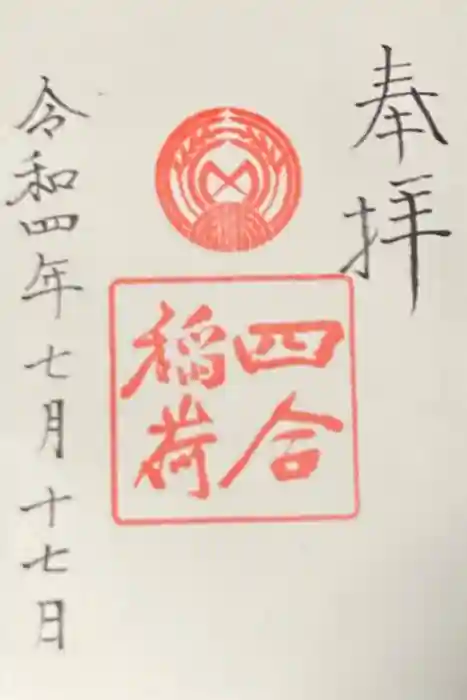 奉拝
四合
稲荷
令和四年七月十七日